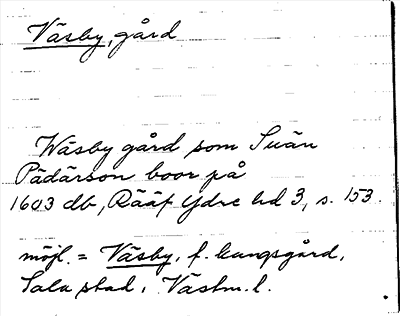 Väsby, gård
Wäsby gård som Suän
Pädärson boor på
1603 db, Rääf Ydre hd 3, s. 153.
möjl. = Väsby, f. kungsgård,
Sala stad, Västm. l.